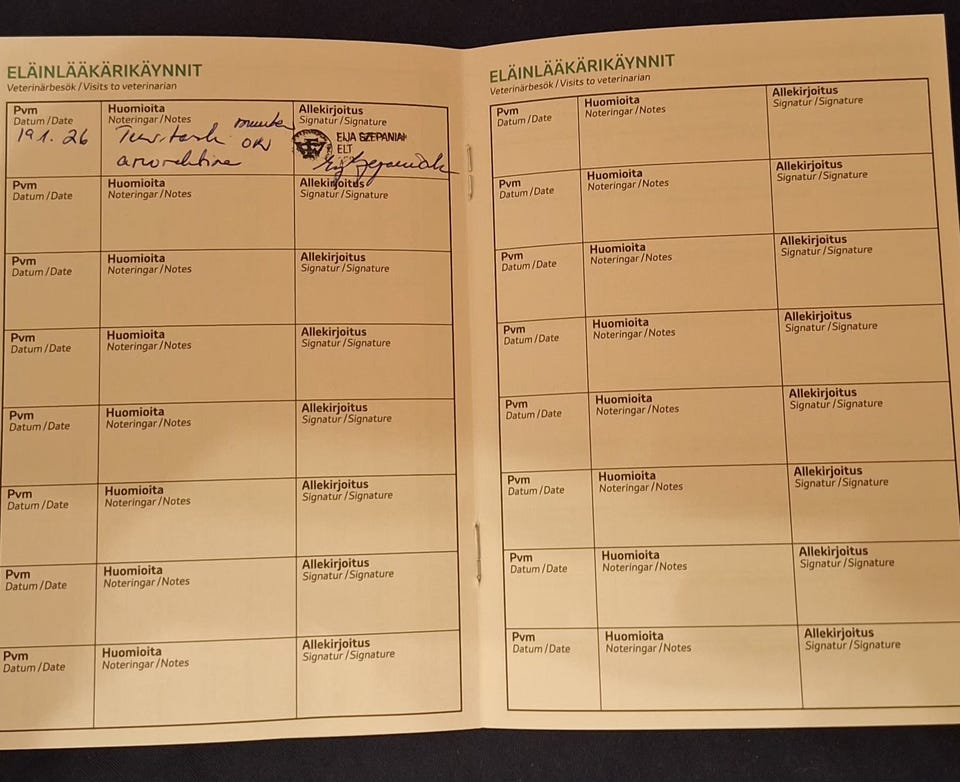 ELÄINLÄÄKÄRIKÄYNNIT
Veterinärbesök / Visits to veterinarian
Pvm Huomioita Allekirjoitus
Datum / Date Noteringar / Notes Signatur / Signature
19 1. 26 muuten OK EIJA SZEPANIAK
ELT
Pvm Huomioita Allekirjoitus
Datum / Date Noteringar / Notes Signatur / Signature
Pvm Huomioita Allekirjoitus
Datum / Date Noteringar / Notes Signatur / Signature
Pvm Huomioita Allekirjoitus
Datum / Date Noteringar / Notes Signatur / Signature
Pvm Huomioita Allekirjoitus
Datum / Date Noteringar / Notes Signatur / Signature
Pvm Huomioita Allekirjoitus
Datum / Date Noteringar / Notes Signatur / Signature
Pvm Huomioita Allekirjoitus
Datum / Date Noteringar / Notes Signatur / Signature
Pvm Huomioita Allekirjoitus
Datum / Date Noteringar / Notes Signatur / Signature
ELÄINLÄÄKÄRIKÄYNNIT
Veterinärbesök / Visits to veterinarian
Pvm Huomioita Allekirjoitus
Datum / Date Noteringar / Notes Signatur / Signature
Pvm Huomioita Allekirjoitus
Datum / Date Noteringar / Notes Signatur / Signature
Pvm Huomioita Allekirjoitus
Datum / Date Noteringar / Notes Signatur / Signature
Pvm Huomioita Allekirjoitus
Datum / Date Noteringar / Notes Signatur / Signature
Pvm Huomioita Allekirjoitus
Datum / Date Noteringar / Notes Signatur / Signature
Pvm Huomioita Allekirjoitus
Datum / Date Noteringar / Notes Signatur / Signature
Pvm Huomioita Allekirjoitus
Datum / Date Noteringar / Notes Signatur / Signature
Pvm Huomioita Allekirjoitus
Datum / Date Noteringar / Notes Signatur / Signature